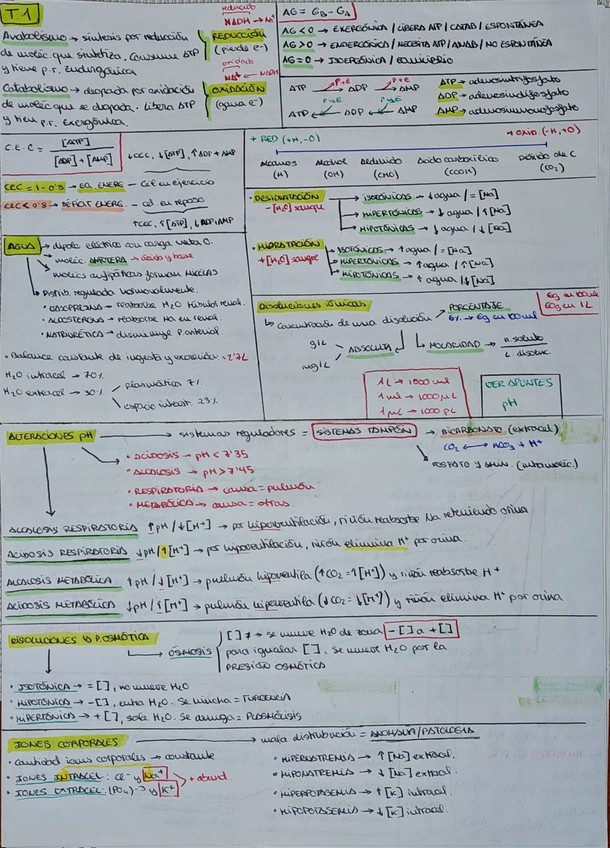 T.1
Anabolismo → síntesis por reducción de moléc. que sintetiza. Consume ATP y tiene p.r. Endergónica
reducido
NADH → NA+
REDUCCIÓN
(pierde e-)
Catabolismo → degrada por oxidación de moléc que se degrada. Libera ATP y tien p.r. Exergónica.
oxidado
NAD+ ← NADH
OXIDACIÓN
(gana e-)
AG = GB - GA
AG < 0 → EXERGÓNICA / LIBERA ATP / CATAB / ESPONTÁNEA
AG > 0 → ENDERGÓNICA / NECESITA ATP / ANAB / NO ESPONTÁNEA
AG = 0 → ISOERGÓNICA / EQUILIBRIO
P+E P+E
ATP → ADP → AMP
P+E P+E
ATP ← ADP ← AMP
ATP → adenosintrifosfato
ADP → adenosindifosfato
AMP → adenosinmonofosfato
C.E.C = [ATP] / [ADP] + [AMP]
↓CEC, ↓[ATP], ↑ADP + AMP
CEC = 1 - 0'8 → EQ. ENERG - Cél en ejercicio
CEC < 0'8 → DÉFICIT ENERG. - cél en reposo
↑CEC, ↑[ATP], ↓ADP+AMP
+ RED (+H, -O)
+ OXID. (-H, +O)
Alcanos (H) Alcohol (OH) Aldehído (CHO) Ácido carboxílico (COOH) Dióxido de C (CO2)
• DESHIDRATACIÓN
-[H2O] sangre
→ ISOTÓNICAS → ↓agua / =[Na]
→ HIPERTÓNICAS → ↓agua / ↑[Na]
→ HIPOTÓNICAS → ↓agua / ↓[Na]
• HIDRATACIÓN
+[H2O] sangre
→ ISOTÓNICAS → ↑agua / =[Na]
→ HIPERTÓNICAS → ↑agua / ↑[Na]
→ HIPOTÓNICAS → ↑agua / ↓[Na]
AGUA → dipolo eléctrico con carga neta 0.
→ moléc. ANFÓTERA → ácido y base
→ molécs anfipáticas forman micelas
→ Distrib. regulada hormonalmente.
• VASOPRESINA → reabsorbe H2O túbulo renal.
• ALDOSTERONA → reabsorbe Na en renal.
• NATRIURÉTICA → disminuye P.arterial.
• Balance constante de ingesta y excreción: 2'7L
H2O intracel → 70%
H2O extracel → 30%
plasmática 7%
espacio interst. 23%
DISOLUCIONES IÓNICAS
↳ concentración de una disolución
PORCENTAJE
6% → 6g en 100ml
6g en 100ml
60g en 1L
g/L
mg/L
ABSOLUTA
MOLARIDAD → n. soluto / L. disoluc.
1L → 1000 ml
1ml → 1000 µL
1µL → 1000 pL
VER APUNTES
pH
ALTERACIONES pH → sistemas reguladores = SISTEMAS TAMPÓN → BICARBONATO (extracel)
CO2 ⟷ HCO3 + H+
→ FOSFATO Y AMIN. (intracel.)
• ACIDOSIS → pH < 7'35
• ALCALOSIS → pH > 7'45
• RESPIRATORIA → causa = pulmón
• METABÓLICA → causa = otras.
ALCALOSIS RESPIRATORIA ↑pH/↓[H+] → por hiperventilación, riñón reabsorbe Na reteniendo orina
ACIDOSIS RESPIRATORIA ↓pH/↑[H+] → por hipoventilación, riñón elimina H+ por orina.
ALCALOSIS METABÓLICA ↑pH/↓[H+] → pulmón hipoventila (↑CO2 = ↑[H+]) y riñón reabsorbe H+
ACIDOSIS METABÓLICA ↓pH/↑[H+] → pulmón hiperventila (↓CO2 = ↓[H+]) y riñón elimina H+ por orina
DISOLUCIONES Y P. OSMÓTICA
ÓSMOSIS
[ ] ≠ → se mueve H2O de zona -[ ] a +[ ]
para igualar [ ]. Se mueve H2O por la
PRESIÓN OSMÓTICA
• ISOTÓNICA → = [ ], no mueve H2O
• HIPOTÓNICA → -[ ], entra H2O. Se hincha = TURGENCIA
• HIPERTÓNICA → +[ ], sale H2O. Se arruga = PLASMÓLISIS
IONES CORPORALES → mala distribución = ANOMALÍA/PATOLOGÍA
• cantidad iones corporales → constante
• IONES INTRACEL: Cl- y Na+
• IONES EXTRACEL: (PO4)-3 y K+
+ abund
• HIPERNATREMIA → ↑[Na] extracel.
• HIPONATREMIA → ↓[Na] extracel.
• HIPERPOTASEMIA → ↑[K] intracel.
• HIPOPOTASEMIA → ↓[K] intracel.